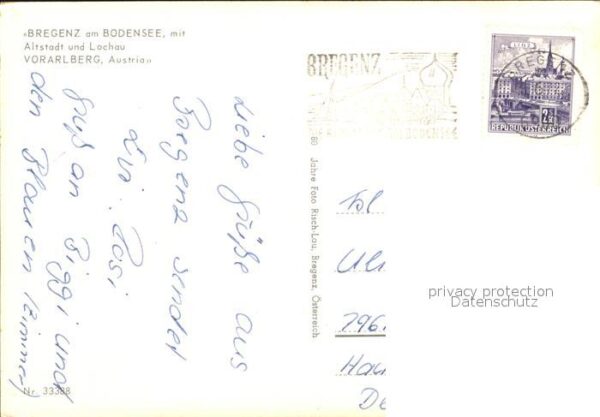 «BREGENZ am BODENSEE, mit
Altstadt und Lochau
VORARLBERG, Austria»
Liebe Grüße aus
Bregenz sendet
Rosi
Gruß an Siggi und
den Blauen
Nr. 33388
80 Jahre Foto Risch-Lau, Bregenz, Österreich
BREGENZ
AM BODENSEE
LINZ
2
REPUBLIK ÖSTERREICH
BREGENZ
Frl
796
privacy protection
Datenschutz